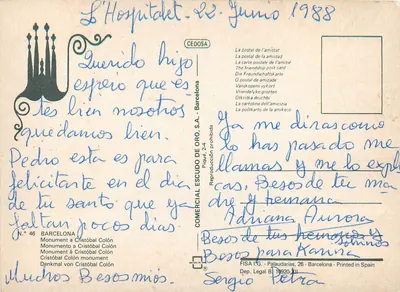 L'Hospitalet - 22 Junio 1988
Querido hijo
espero que es-
tes bien nosotros
quedamos bien.
Pedro esta es para
felicitarte en el dia
de tu santo que ya
faltan pocos dias.
Muchos Besos mios.
N.° 46 BARCELONA
Monument a Cristòbal Colón
Monumento a Cristóbal Colón
Monument à Cristóbal Colón
Cristóbal Colón monument
Denkmal von Cristóbal Colón
CEDOSA
COMERCIAL ESCUDO DE ORO, S.A. - Barcelona
Reproducción prohibida
La postal de l'amistat
La postal de la amistad
La carte postale de l'amitié
The friendship post card
Die Freundschaftskarte
O postal de amizade
La cartolina dell'amicizia
Ya me diras como
lo has pasado me
llamas y me lo expli
cas, Besos de tu ma
dre y hermana
Adriana Aurora
Besos de tus hermanos y
sobrinos
Besos para Karina
Sergio Petra
FISA I.G. - Palaudarias, 26 - Barcelona - Printed in Spain
Dep. Legal B.